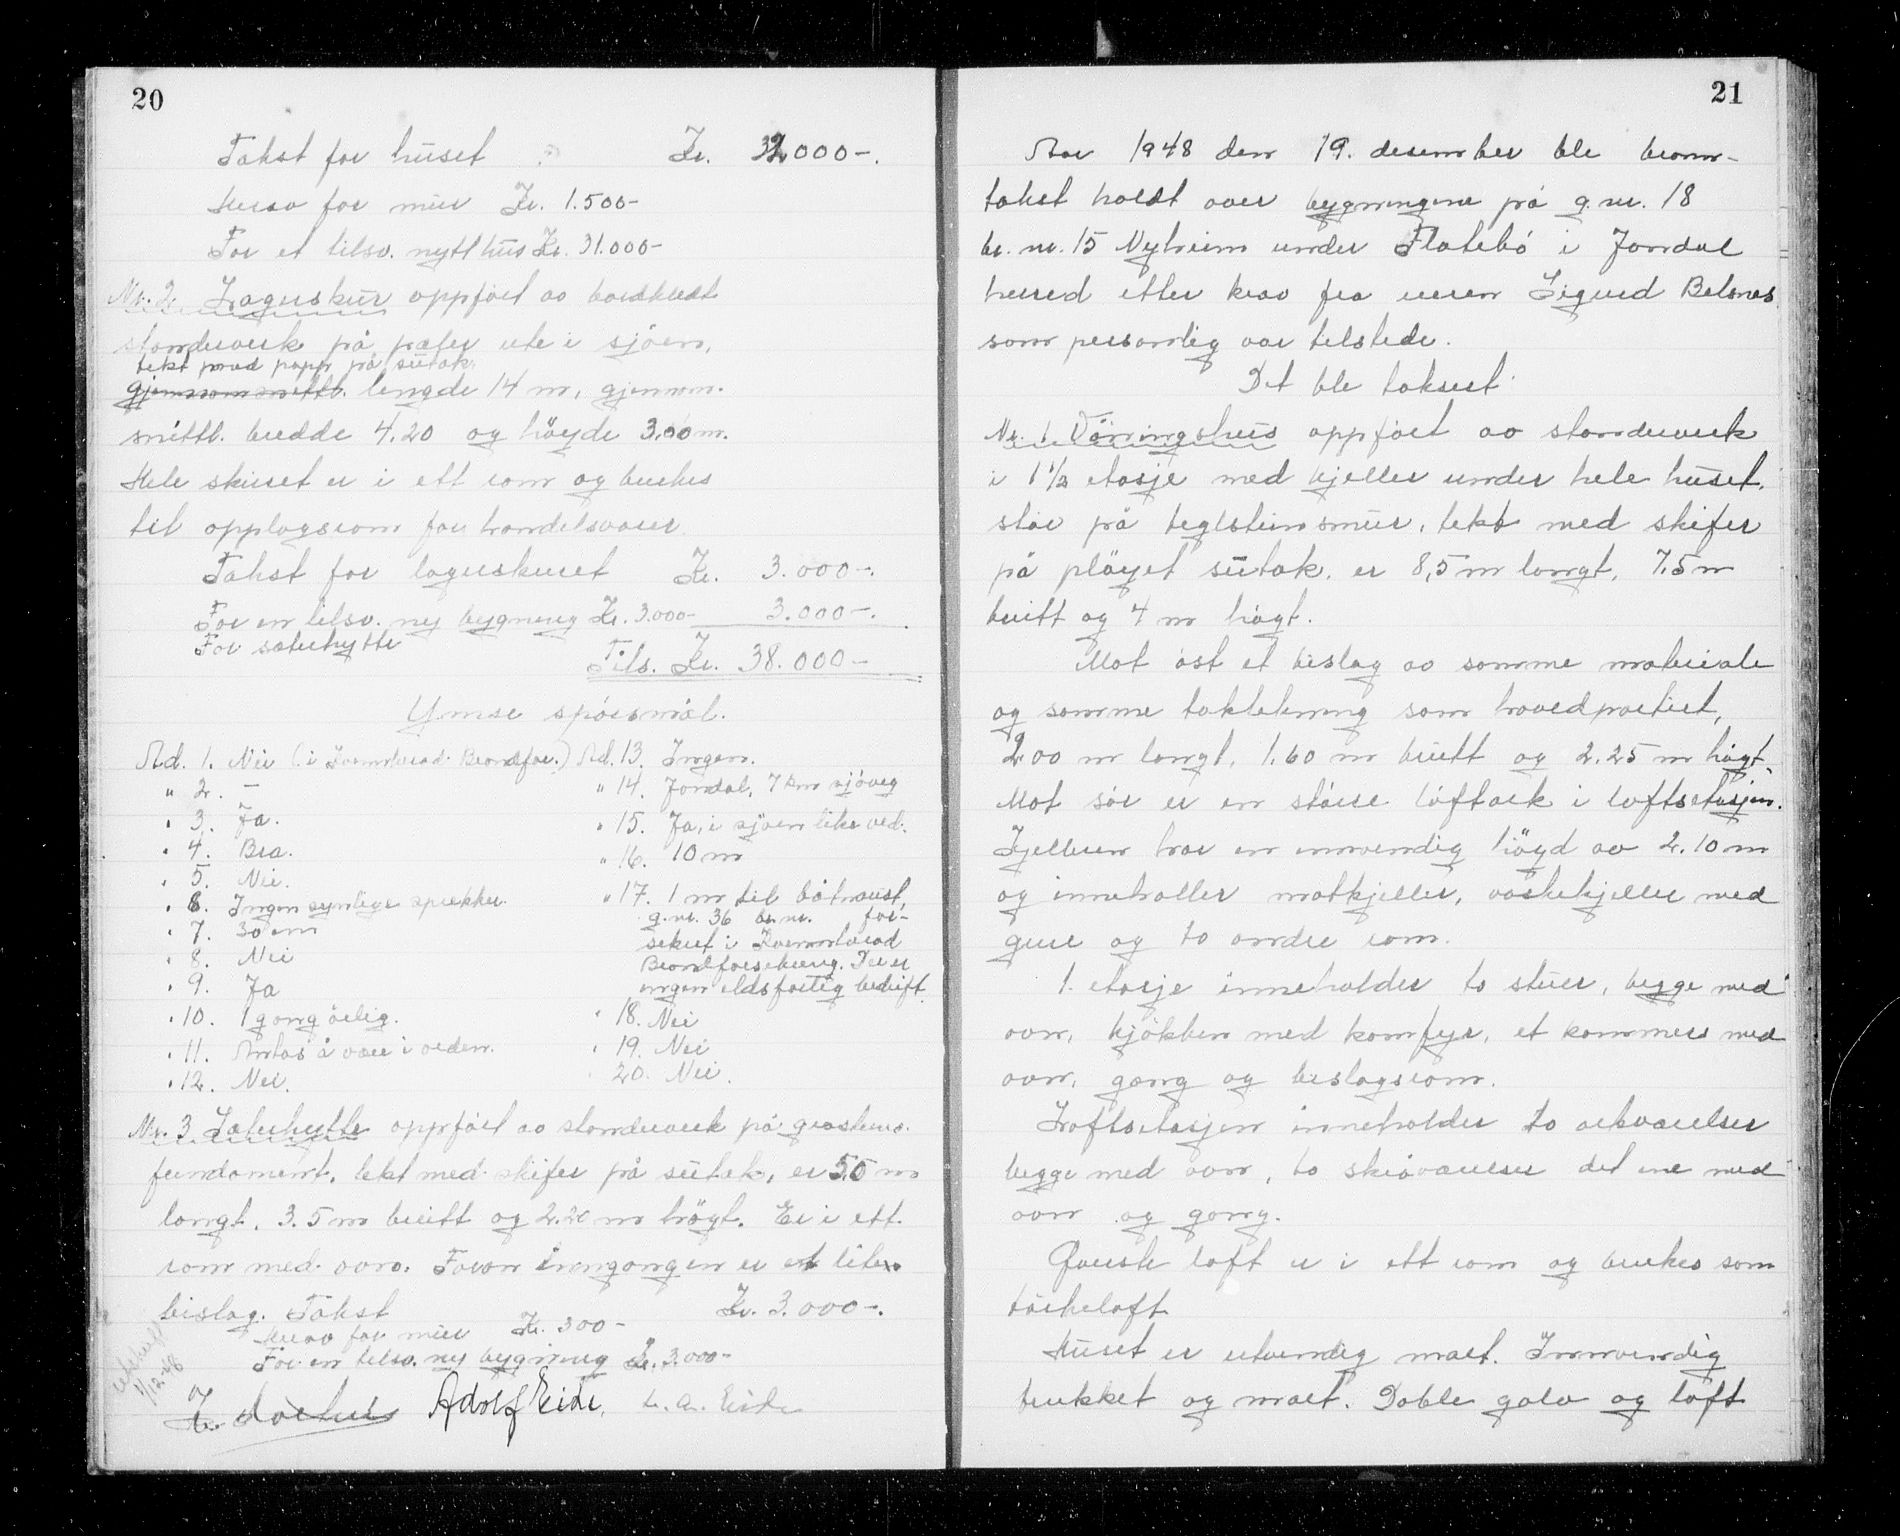 20
Takst for huset Kr. 32000-.
Herav for mur Kr. 1.500-
For et tilsv. nytt hus Kr. 31.000-
Nr. 2. Lagerskur oppført av bordkledt
standerverk på peler ute i sjøen,
tekt med papp på sutak.
lengde 14 m, gjennom-
snittl. bredde 4.20 og høyde 3.00 m.
Hele skuret er i ett rom og brukes
til opplagsrom for handelsvarer.
Takst for lagerskuret Kr. 3.000-.
For en tilsv. ny bygning Kr. 3.000- 3.000-.
For sæterhytte
Tils. Kr. 38.000-
Ymse spørsmål.
Ad. 1. Nei (i Kvamherad Brandfor.)
" 2. -
" 3. Ja.
" 4. Bra.
" 5. Nei.
" 6. Ingen synlige sprekker.
" 7. 30 cm
" 8. Nei
" 9. Ja
" 10. 1 gang årlig.
" 11. Antas å være i orden.
" 12. Nei.
Ad. 13. Ingen.
" 14. Jondal, 7 km sjøveg
" 15. Ja, i sjøen like ved.
" 16. 10 m
" 17. 1 m til båtnaust,
g.nr. 36 br.nr. for-
sikret i Kvamherad
Brandforsikring. Der er
ingen eldsfarlig bedrift
" 18. Nei
" 19. Nei
20. Nei.
Nr. 3 Sæterhytte oppført av standerverk på gråsteins-
fundament, tekt med skifer på sutak, er 5.5 m
langt, 3.5 m breitt og 2.20 m høgt. Er i ett
rom med ovn. Foran inngangen er et lite
bislag. Takst Kr. 3.000-.
Herav for mur Kr. 300-
For en tilsv. ny bygning Kr. 3.000-
utskrift
1/12-48
Adolf Eide. L. A. Eide
21
Aar 1948 den 19. desember ble brann-
takst holdt over bygningene på g.nr. 18
br. nr. 15 Nyheim under Flatebø i Jondal
herred etter krav fra eieren Sigurd Belsnes
som personlig var tilstede.
Det ble taksert:
Nr. 1. Våningshus oppført av standerverk
i 1 1/2 etasje med kjeller under hele huset,
står på teglsteinsmur, tekt med skifer
på pløyet sutak, er 8,5 m langt, 7.5 m
breitt og 4 m høgt.
Mot øst et bislag av samme materiale
og samme taktekning som hovedpartiet,
2.00 m langt, 1.60 m breitt og 2.25 m høgt.
Mot sør er en større loftark i loftsetasjen.
Kjelleren har en innvendig høgd av 2.10 m
og inneholler matkjeller, vaskekjeller med
grue og to andre rom.
1. etasje inneholder to stuer, begge med
ovn, kjøkken med komfyr, et kammers med
ovn, gang og bislagsrom.
Loftsetasjen inneholder to arkværelser
begge med ovn, to skråværelser det ene med
ovn og gang.
Øverste loft er i ett rom og brukes som
tørkeloft.
Huset er utvendig malt. Innvendig
trukket og malt. Doble golv og loft